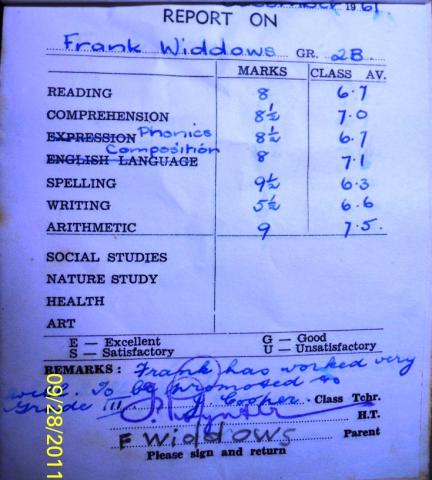 December 1961
REPORT ON
Frank Widdows GR. 2B.
MARKS CLASS AV.
READING 8 6.7
COMPREHENSION 8½ 7.0
EXPRESSION Phonics 8½ 6.7
Composition
ENGLISH LANGUAGE 8 7.1
SPELLING 9½ 6.3
WRITING 5½ 6.6
ARITHMETIC 9 7.5.
SOCIAL STUDIES
NATURE STUDY
HEALTH
ART
E — Excellent G — Good
S — Satisfactory U — Unsatisfactory
REMARKS: Frank has worked very
well. To be promoted to
Grade III J. Cooper. Class Tchr.
H.T.
F Widdows Parent
Please sign and return
09/28/2011